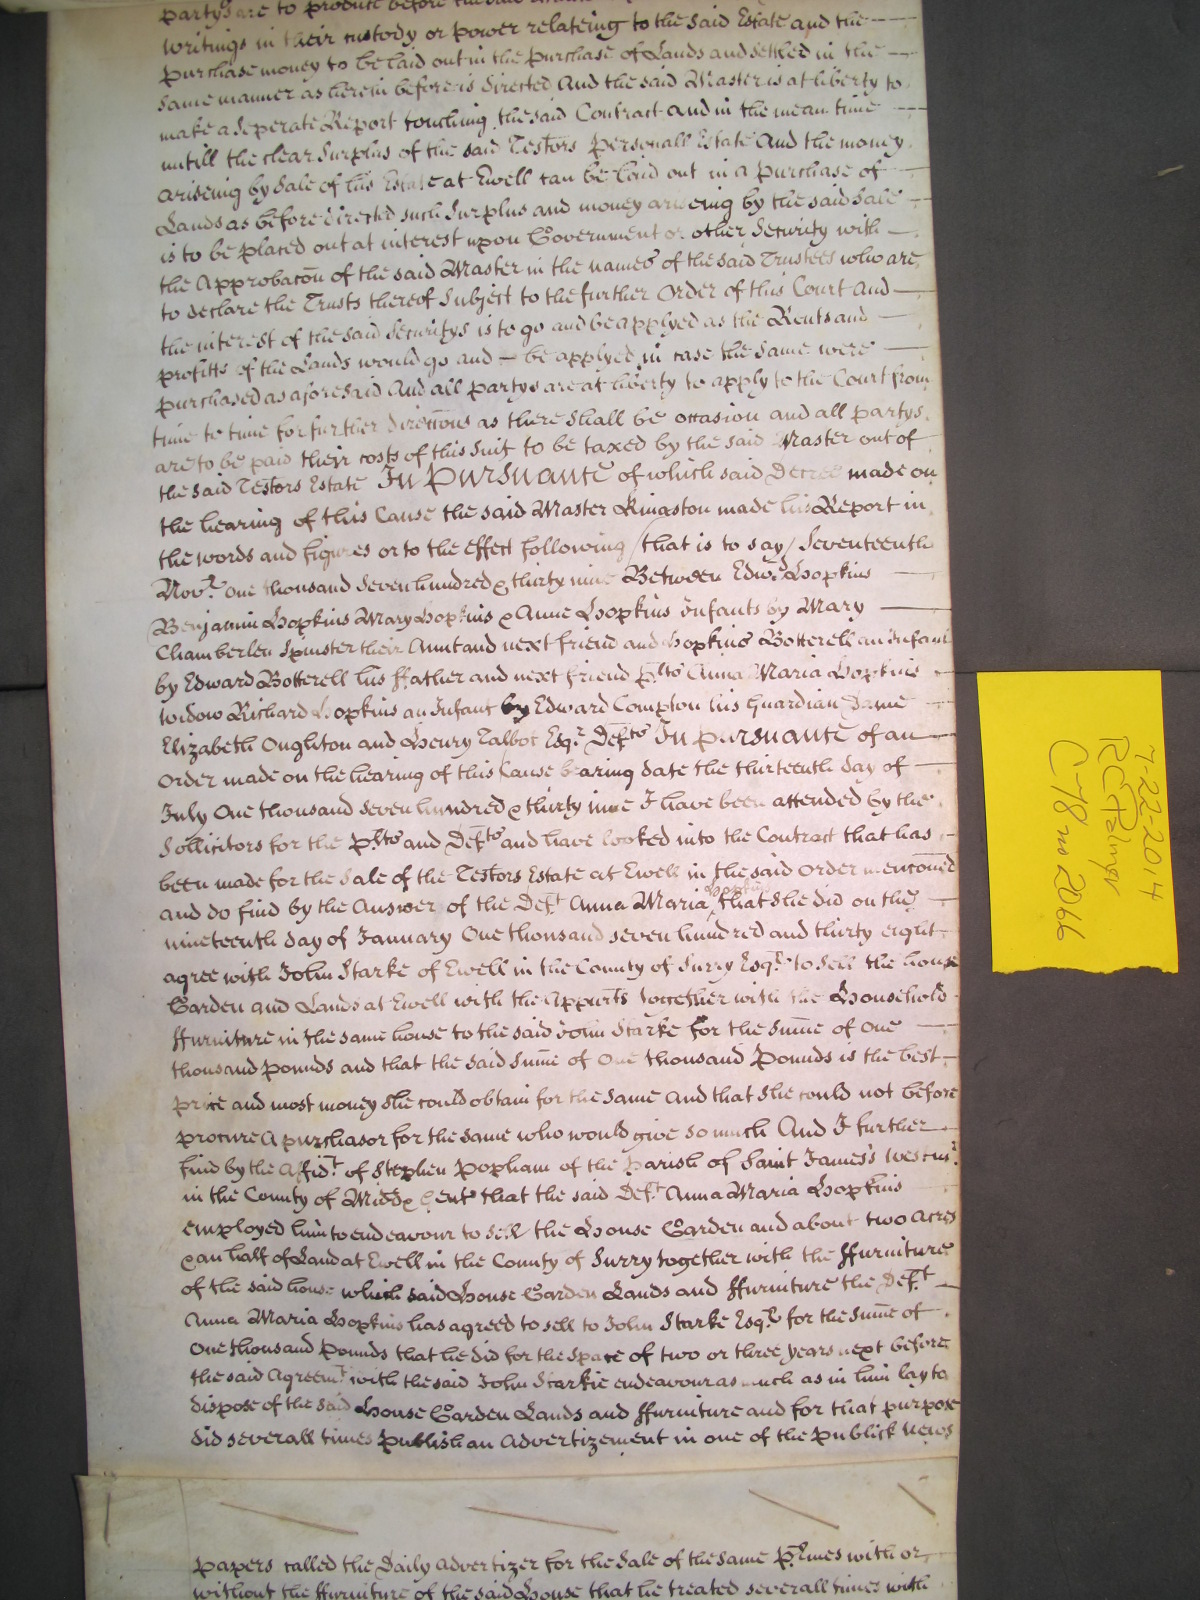 partys are to produce before the said
writings in their custody or power relateing to the said Estate and the
purchase money to be laid out in the purchase of Lands and settled in the
same manner as herein before is directed And the said Master is at liberty to
make a seperate Report touching the said Contract and in the mean time
untill the clear Surplus of the said Testors personall Estate And the money
ariseing by Sale of his Estate at Ewell can be laid out in a purchase of
Lands as before directed such Surplus and money ariseing by the said Sale
is to be placed out at interest upon Government or other Security with
the Approbacon of the said Master in the names of the said Trustees who are
to declare the Trusts thereof Subject to the further Order of this Court And
the interest of the said Securitys is to go and be applyed as the Rents and
profitts of the Lands would go and be applyed in case the same were
purchased as aforesaid And all partys are at liberty to apply to the Court from
time to time for further direccons as there shall be occasion and all partys
are to be paid their costs of this Suit to be taxed by the said Master out of
the said Testors Estate In Pursuance of which said Decree made on
the hearing of this Cause the said Master Kingston made his Report in
the words and figures or to the effect following (that is to say) Seventeenth
Novr. One thousand seven hundred & thirty nine Between Edwd. Hopkins
Benjamin Hopkins Mary Hopkins & Anne Hopkins Infants by Mary
Chamberlen Spinster their Aunt and next friend and Hopkins Botterell an Infant
by Edward Botterell his ffather and next friend plts Anna Maria Hopkins
widow Richard Hopkins an Infant by Edward Compton his Guardian Dame
Elizabeth Oughton and Henry Talbot Esqr. Defts In pursuance of an
Order made on the hearing of this Cause bearing date the thirteenth day of
July One thousand seven hundred & thirty nine I have been attended by the
Sollicitors for the Plts and Defts and have looked into the Contract that has
been made for the Sale of the Testors Estate at Ewell in the said Order menconed
and do find by the Answer of the Deft Anna Maria Hopkins that she did on the
nineteenth day of January One thousand seven hundred and thirty eight
agree with John Starke of Ewell in the County of Surry Esqr. to sell the house
Garden and Lands at Ewell with the Appurts together with the Household
ffurniture in the same house to the said John Starke for the Sume of One
thousand pounds and that the said Sume of One thousand Pounds is the best
price and most money she could obtain for the same And that she could not before
procure a purchasor for the same who would give so much And I further
find by the Affidt of Stephen Popham of the Parish of Saint James's Westmr.
in the County of Middx Gent that the said Deft Anna Maria Hopkins
employed him to endeavour to sell the House Garden and about two Acres
& an half of Land at Ewell in the County of Surry together with the ffurniture
of the said house which said House Garden Lands and ffurniture the Deft
Anna Maria Hopkins has agreed to sell to John Starke Esqr for the Sume of
One thousand Pounds that he did for the space of two or three years next before
the said Agreemt with the said John Starkie endeavour as much as in him lay to
dispose of the said House Garden Lands and ffurniture and for that purpose
did severall times publish an Advertizement in one of the publick News
papers called the Daily Advertizer for the Sale of the same Pmes with or
without the ffurniture of the said House that he treated severall times with
7-22-2014
RCPalmer
C78 no 2066